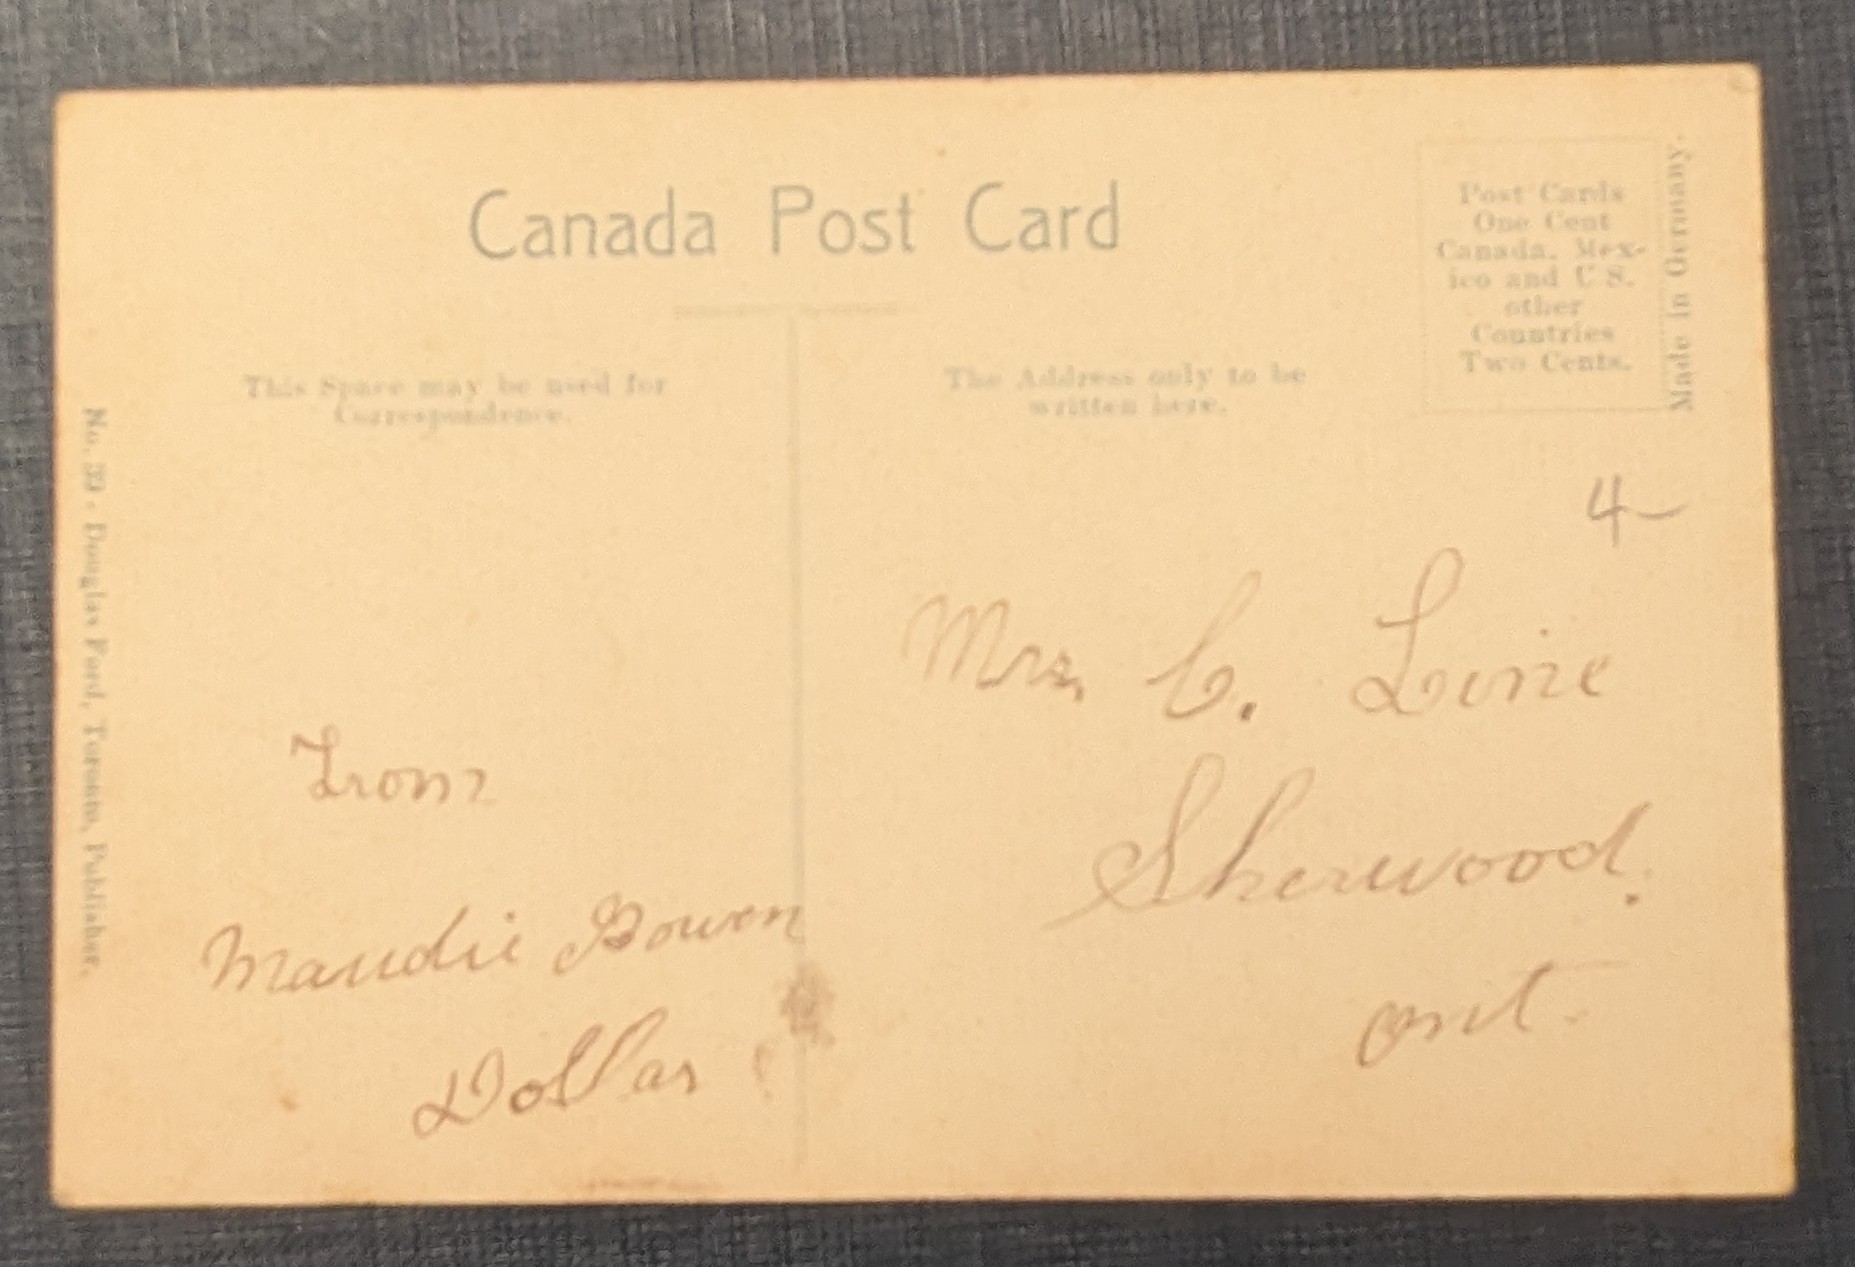 Canada Post Card
Post Cards
One Cent
Canada, Mex-
ico and U.S.
other
Countries
Two Cents.
Made in Germany.
This Space may be used for
Correspondence.
The Address only to be
written here.
No. 39 - Douglas Ford, Toronto, Publisher.
4
Mrs. C. Line
Sherwood.
Ont.
From
Maudie Bowen
Dollar